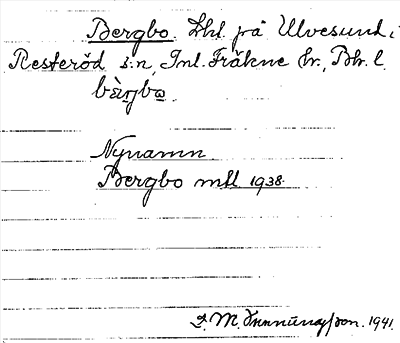 Bergbo. Lhl på Ulvesund i
Resteröd s:n, Inl. Fräkne hr., Bh. l.
bærjbo
Nynamn
Bergbo mtl 1938.
M. 1941.